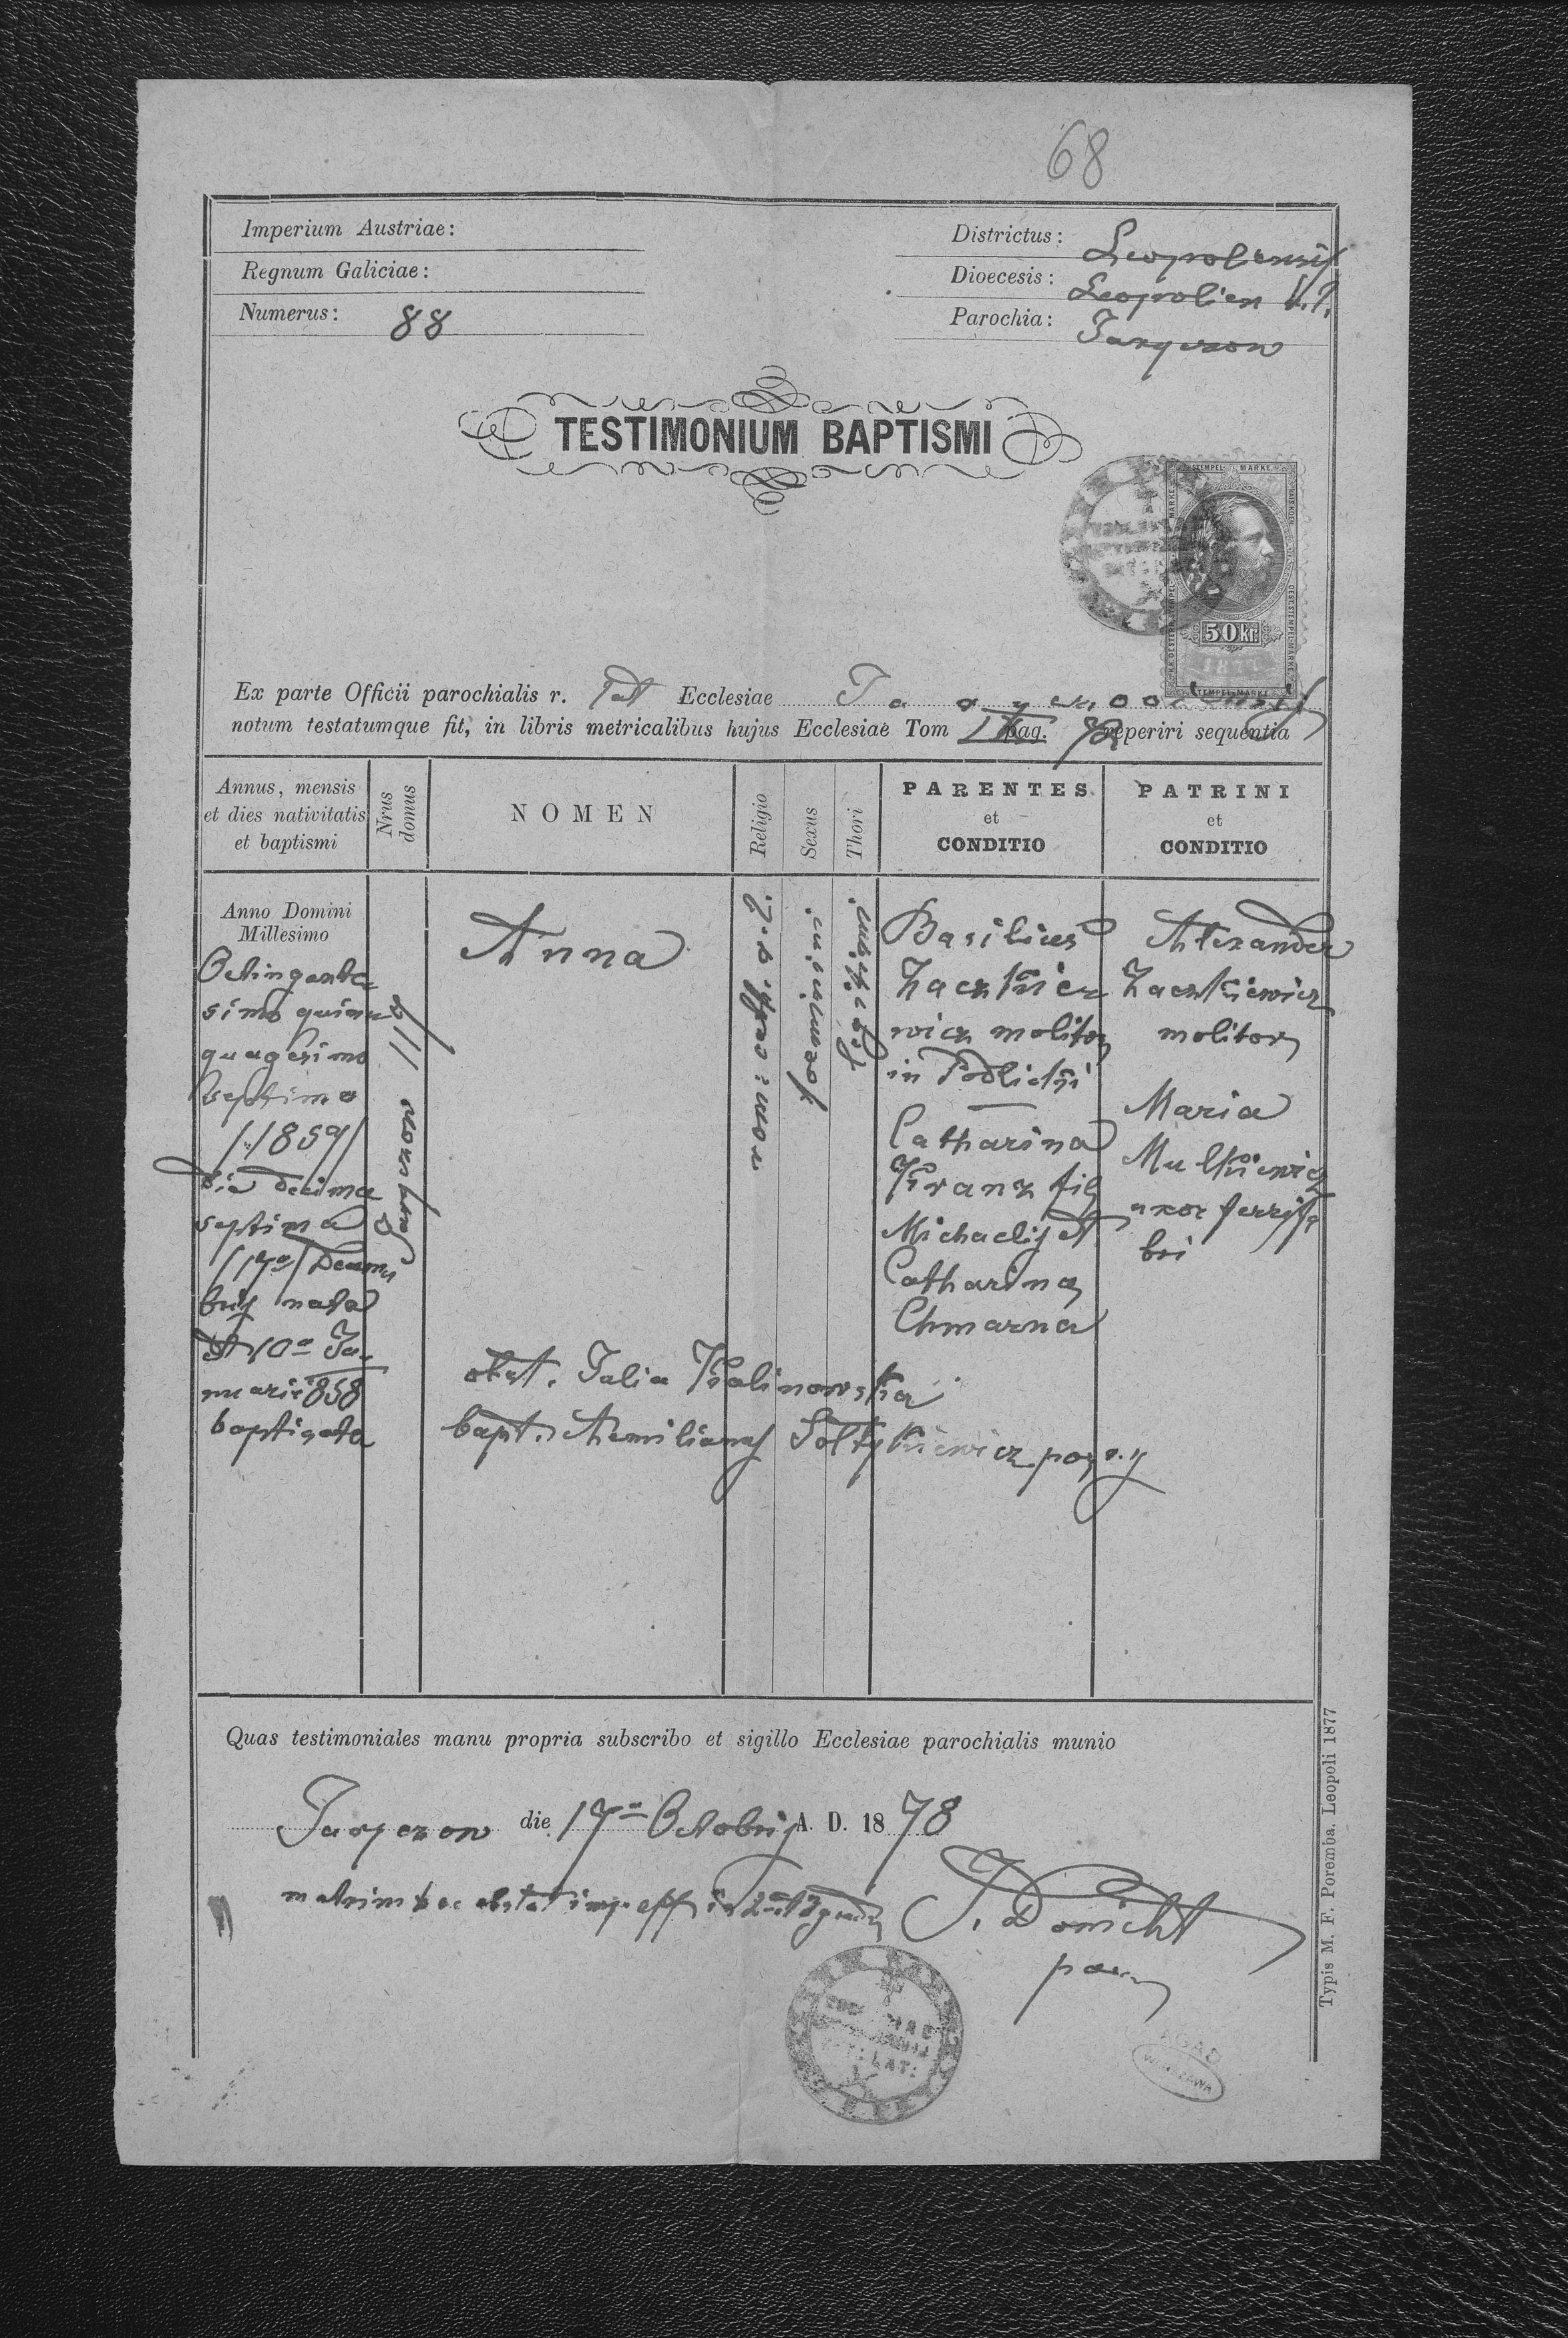 68
Imperium Austriae:
Regnum Galiciae:
Numerus: 88
Districtus: Leopoliensis
Dioecesis: Leopolien r. l.
Parochia: Jaryczow
TESTIMONIUM BAPTISMI
STEMPEL MARKE
50 kr.
1877
Ex parte Officii parochialis r. lat Ecclesiae Jaryczoviensis
notum testatumque fit, in libris metricalibus hujus Ecclesiae Tom pag. reperiri sequentia
Annus, mensis
et dies nativitatis
et baptismi
Nrus
domus
NOMEN
Religio
Sexus
Thori
PARENTES
et
CONDITIO
PATRINI
et
CONDITIO
Anno Domini
Millesimo
Octingente
simo quin
quagesimo
septimo
/:1857/
die decima
septima
/17a/ Decem
bris nata
et 10a Ja
nuarii 858
baptisata
Anna
rom: cath.
feminini
legitimi
Basilius
Zaczkie
wicz molitor
in Podliski
Catharina
Kranz fil
Michaelis et
Catharina
Chmarna
Alexander
Zaczkiewicz
molitor
Maria
Mulkiewicz
uxor ferrifa
bri
obst. Julia Kalinowska
bapt. Aemilianus Soltykiewicz par
Quas testimoniales manu propria subscribo et sigillo Ecclesiae parochialis munio
Jaryczow die 17a Octobris A. D. 1878
Typis M. F. Poremba. Leopoli 1877
AGAD
WARSZAWA